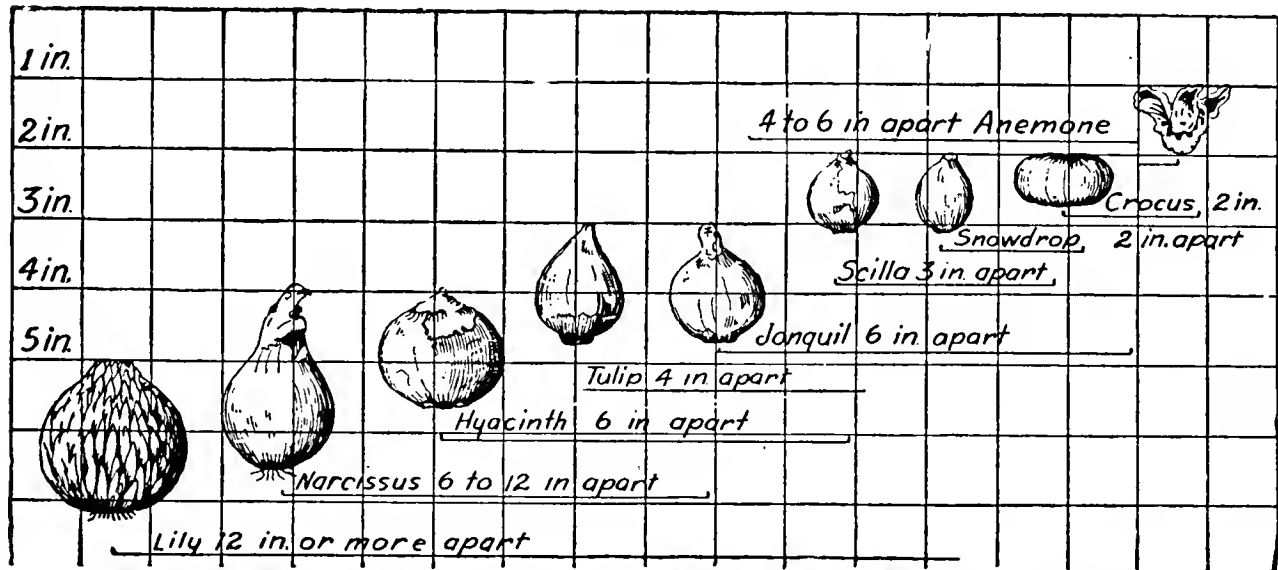 1 in.
2 in.
4 to 6 in apart Anemone
3 in.
Crocus, 2 in.
Snowdrop, 2 in. apart
4 in.
Scilla 3 in. apart
5 in.
Jonquil 6 in. apart
Tulip 4 in apart
Hyacinth 6 in apart
Narcissus 6 to 12 in apart
Lily 12 in. or more apart